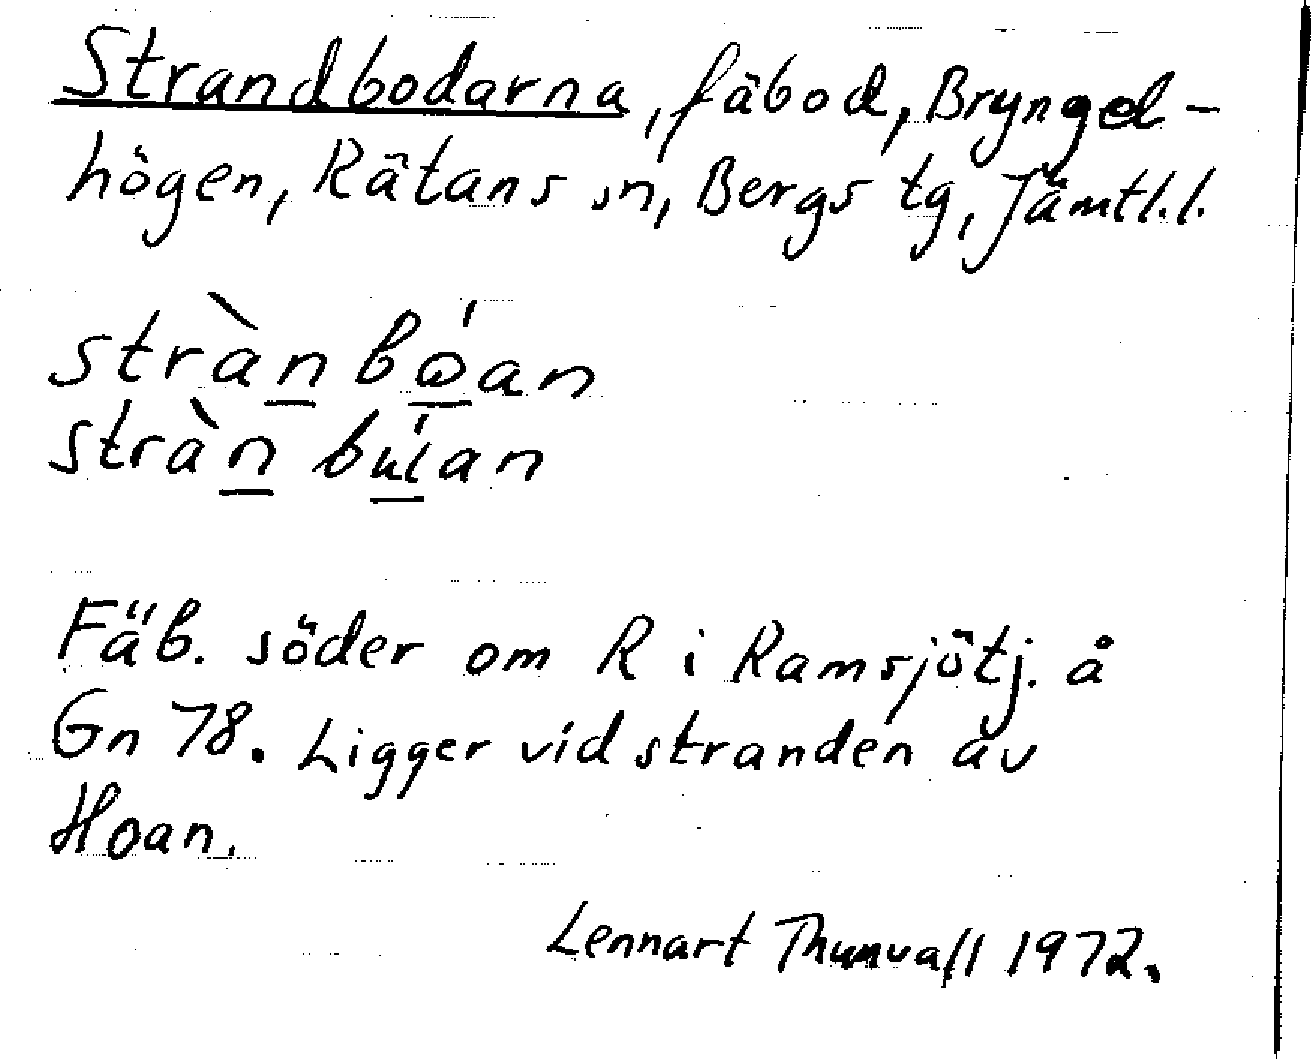 Strandbodarna, fäbod, Bryngel-
högen, Rätans sn, Bergs tg, Jämtl.l.
stràn bóan
stràn búan
Fäb. söder om R i Ramsjötj. å
Gn 78. Ligger vid stranden av
Hoan.
Lennart Thunvall 1972.